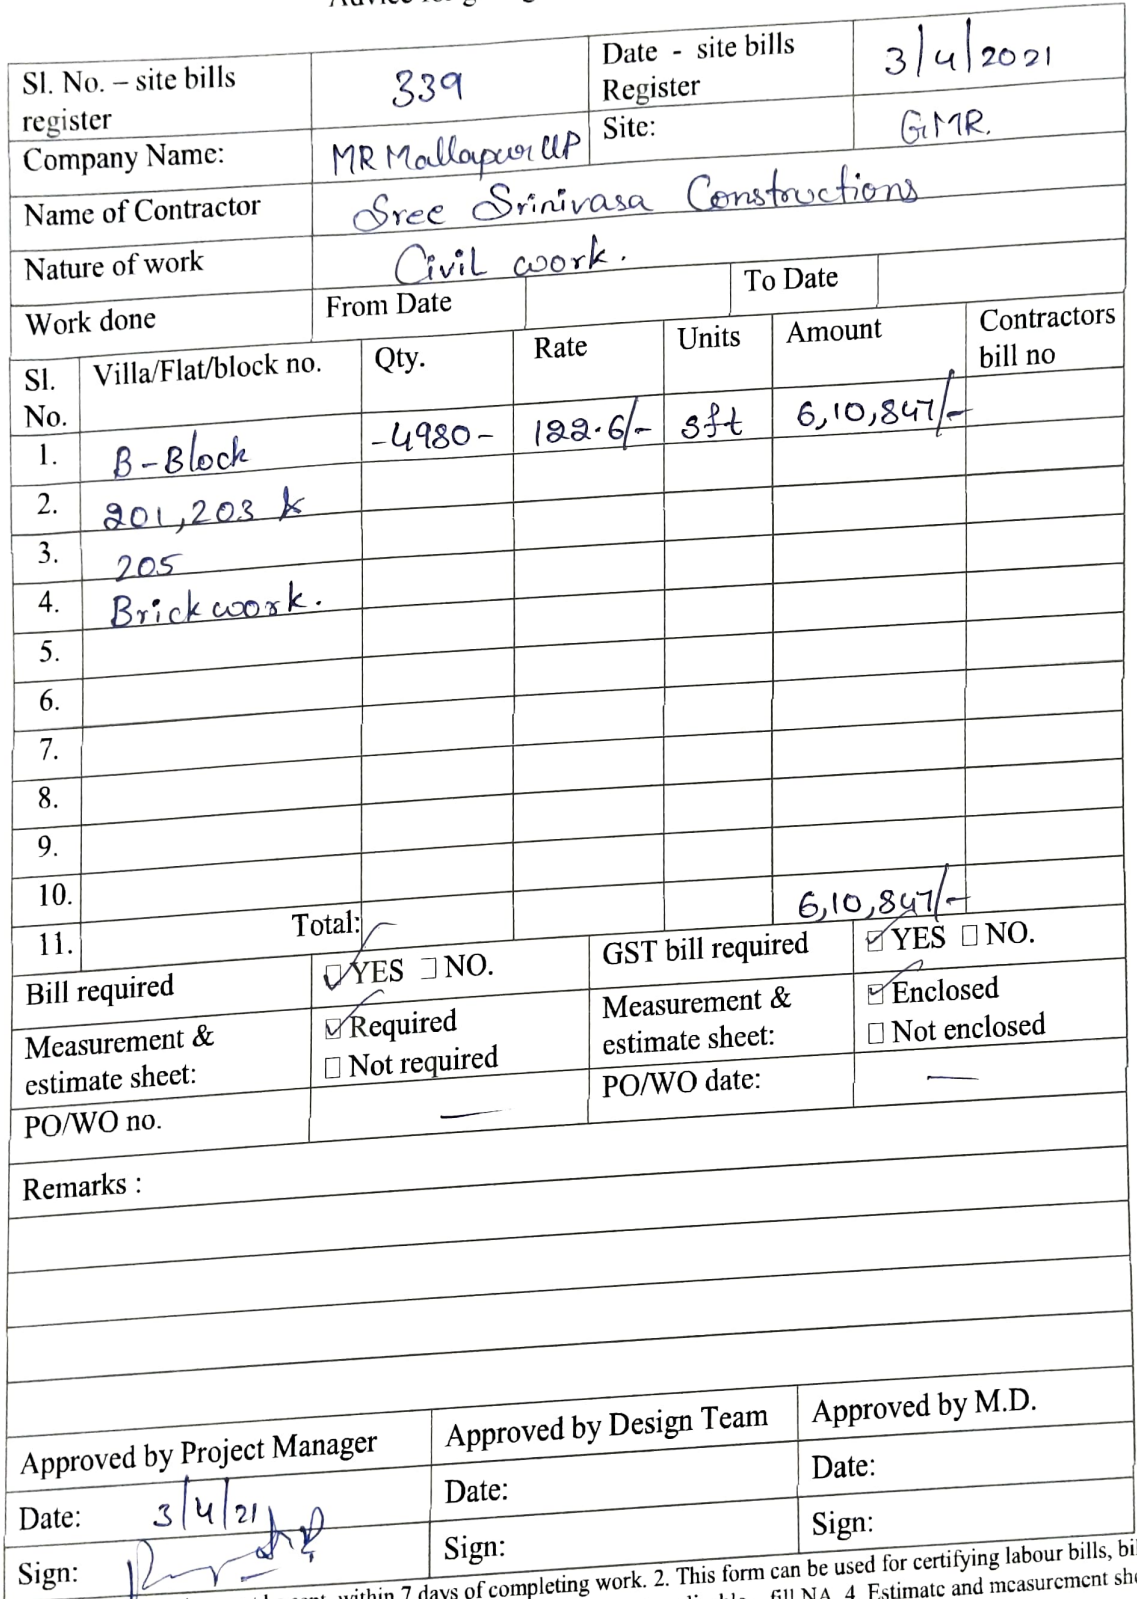 Sl. No. – site bills register 339 Date - site bills Register 3/4/2021
Company Name: MR Mallapur LLP Site: GMR.
Name of Contractor Sree Srinivasa Constructions
Nature of work Civil work.
Work done From Date To Date
Sl. No. Villa/Flat/block no. Qty. Rate Units Amount Contractors bill no
1. B-Block -4980- 122.6/- sft 6,10,847/-
2. 201,203 &
3. 205
4. Brick work.
5.
6.
7.
8.
9.
10.
11. Total: 6,10,847/-
Bill required ☑YES ☐NO. GST bill required ☑YES ☐NO.
Measurement & estimate sheet: ☑Required ☐Not required Measurement & estimate sheet: ☑Enclosed ☐Not enclosed
PO/WO no. — PO/WO date: —
Remarks :
Approved by Project Manager Approved by Design Team Approved by M.D.
Date: 3/4/21 Date: Date:
Sign: Sign: Sign:
within 7 days of completing work. 2. This form can be used for certifying labour bills,
fill NA. 4. Estimate and measurement